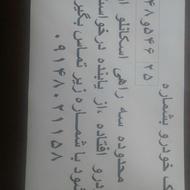 ک خودرو بشماره
۵۴۶و۴۸ ۲۵
محدوده سه راهی اسکانلو ا
درو افتاده ،از یابنده درخواست
شود با شماره زیر تماس بگیر
۰۹۱۴۸۰۲۱۱۵۸